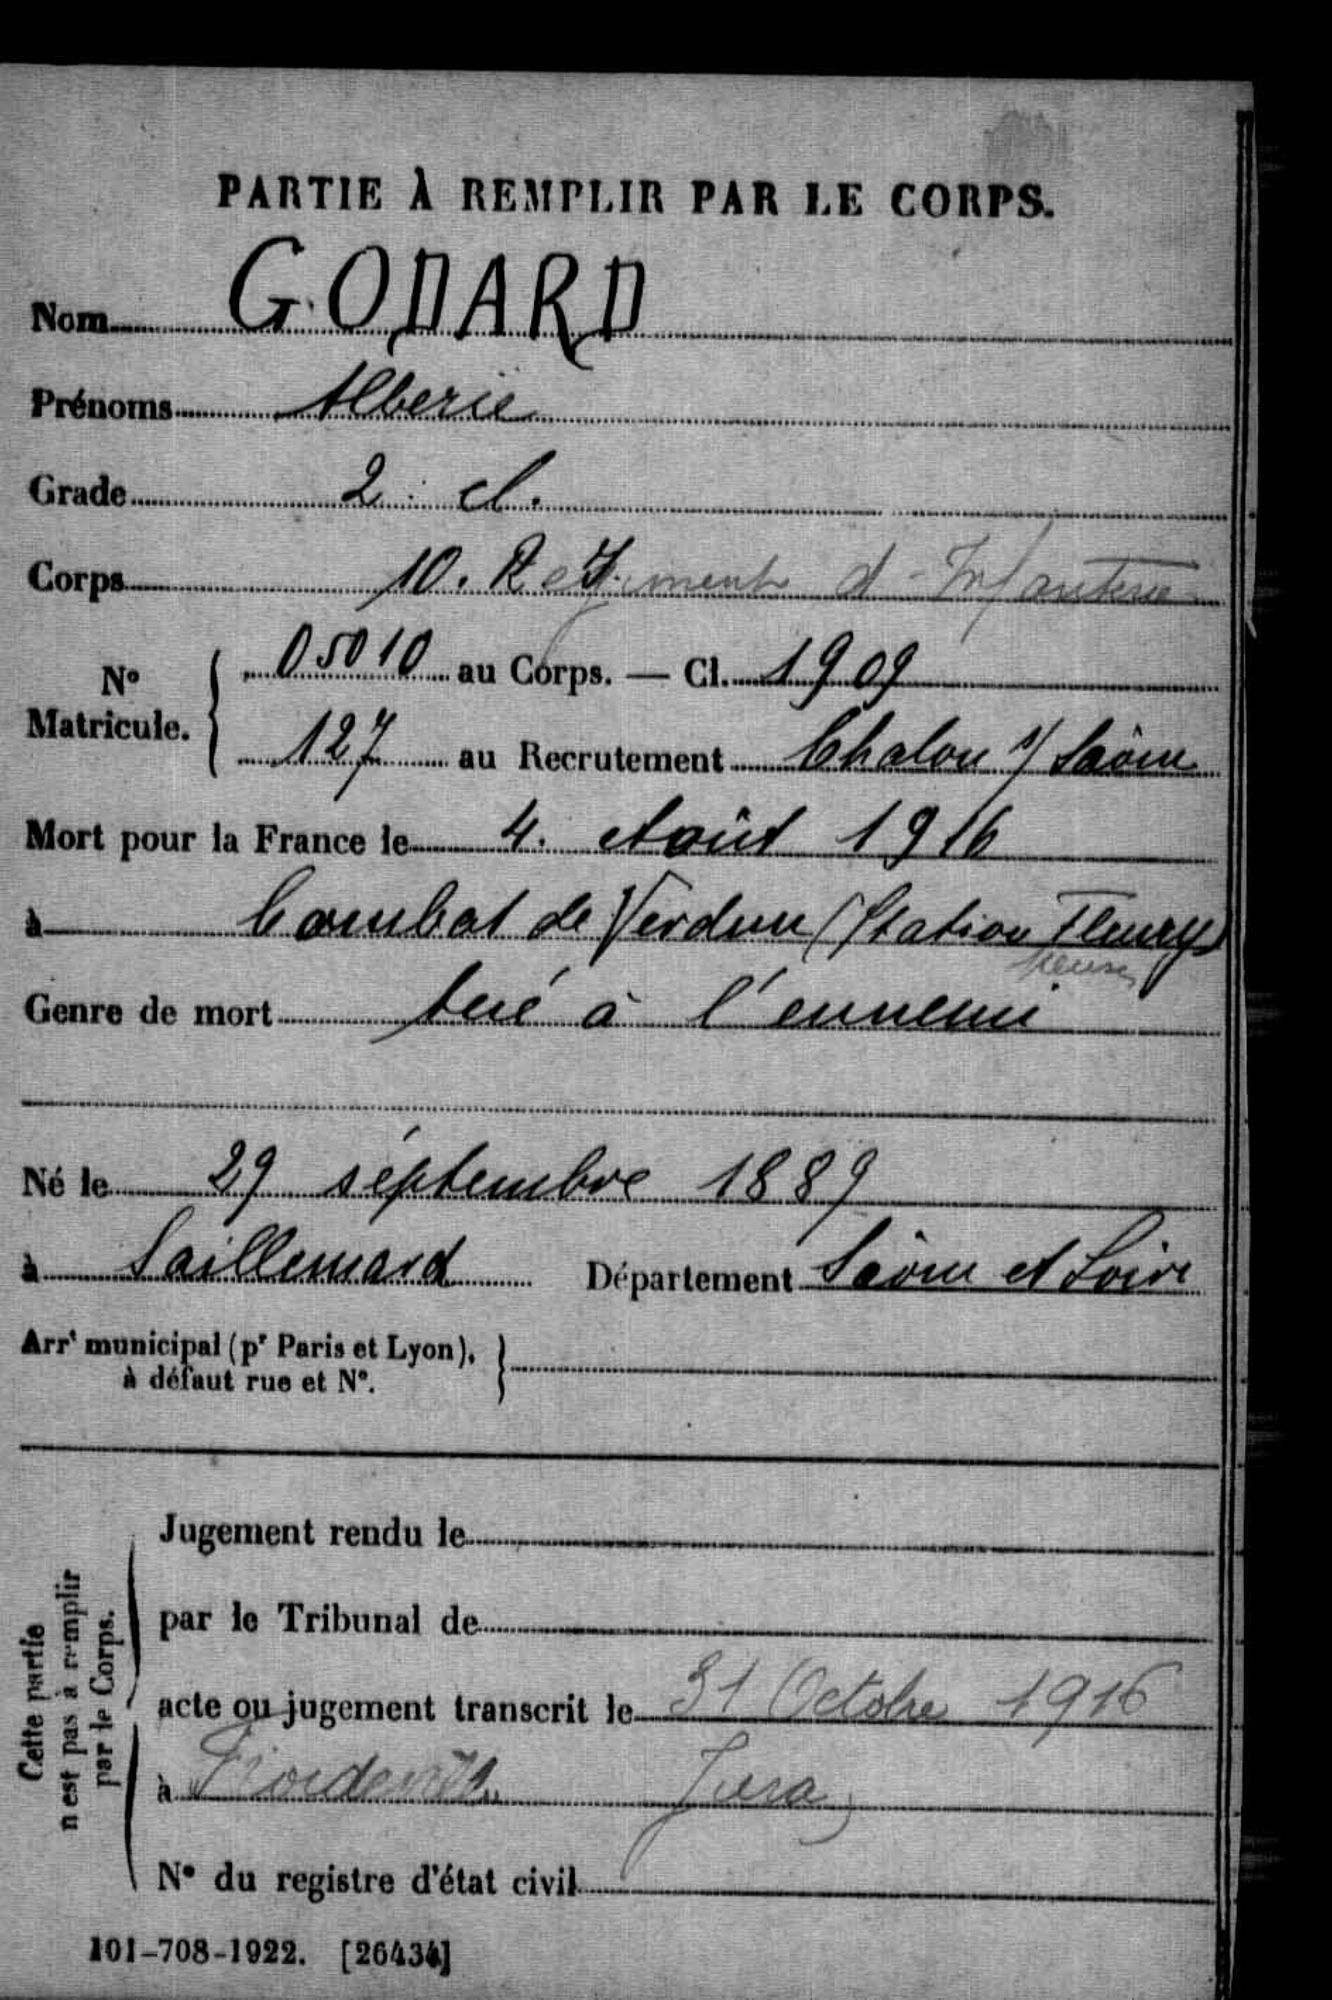 PARTIE À REMPLIR PAR LE CORPS.
Nom GODARD
Prénoms Alberic
Grade 2e cl.
Corps 10. Régiment d'Infanterie
No Matricule. 05010 au Corps. — Cl. 1909
127 au Recrutement Chalon s/ Saône
Mort pour la France le 4. Août 1916
à Combat de Verdun (Station Fleury)
Meuse
Genre de mort tué à l'ennemi
Né le 29 septembre 1889
à Saillemard Département Saône et Loire
Arrt municipal (pr Paris et Lyon),
à défaut rue et No.
Cette partie
n'est pas à remplir
par le Corps.
Jugement rendu le
par le Tribunal de
acte ou jugement transcrit le 31 Octobre 1916
à Jura
No du registre d'état civil
101-708-1922. [26434]